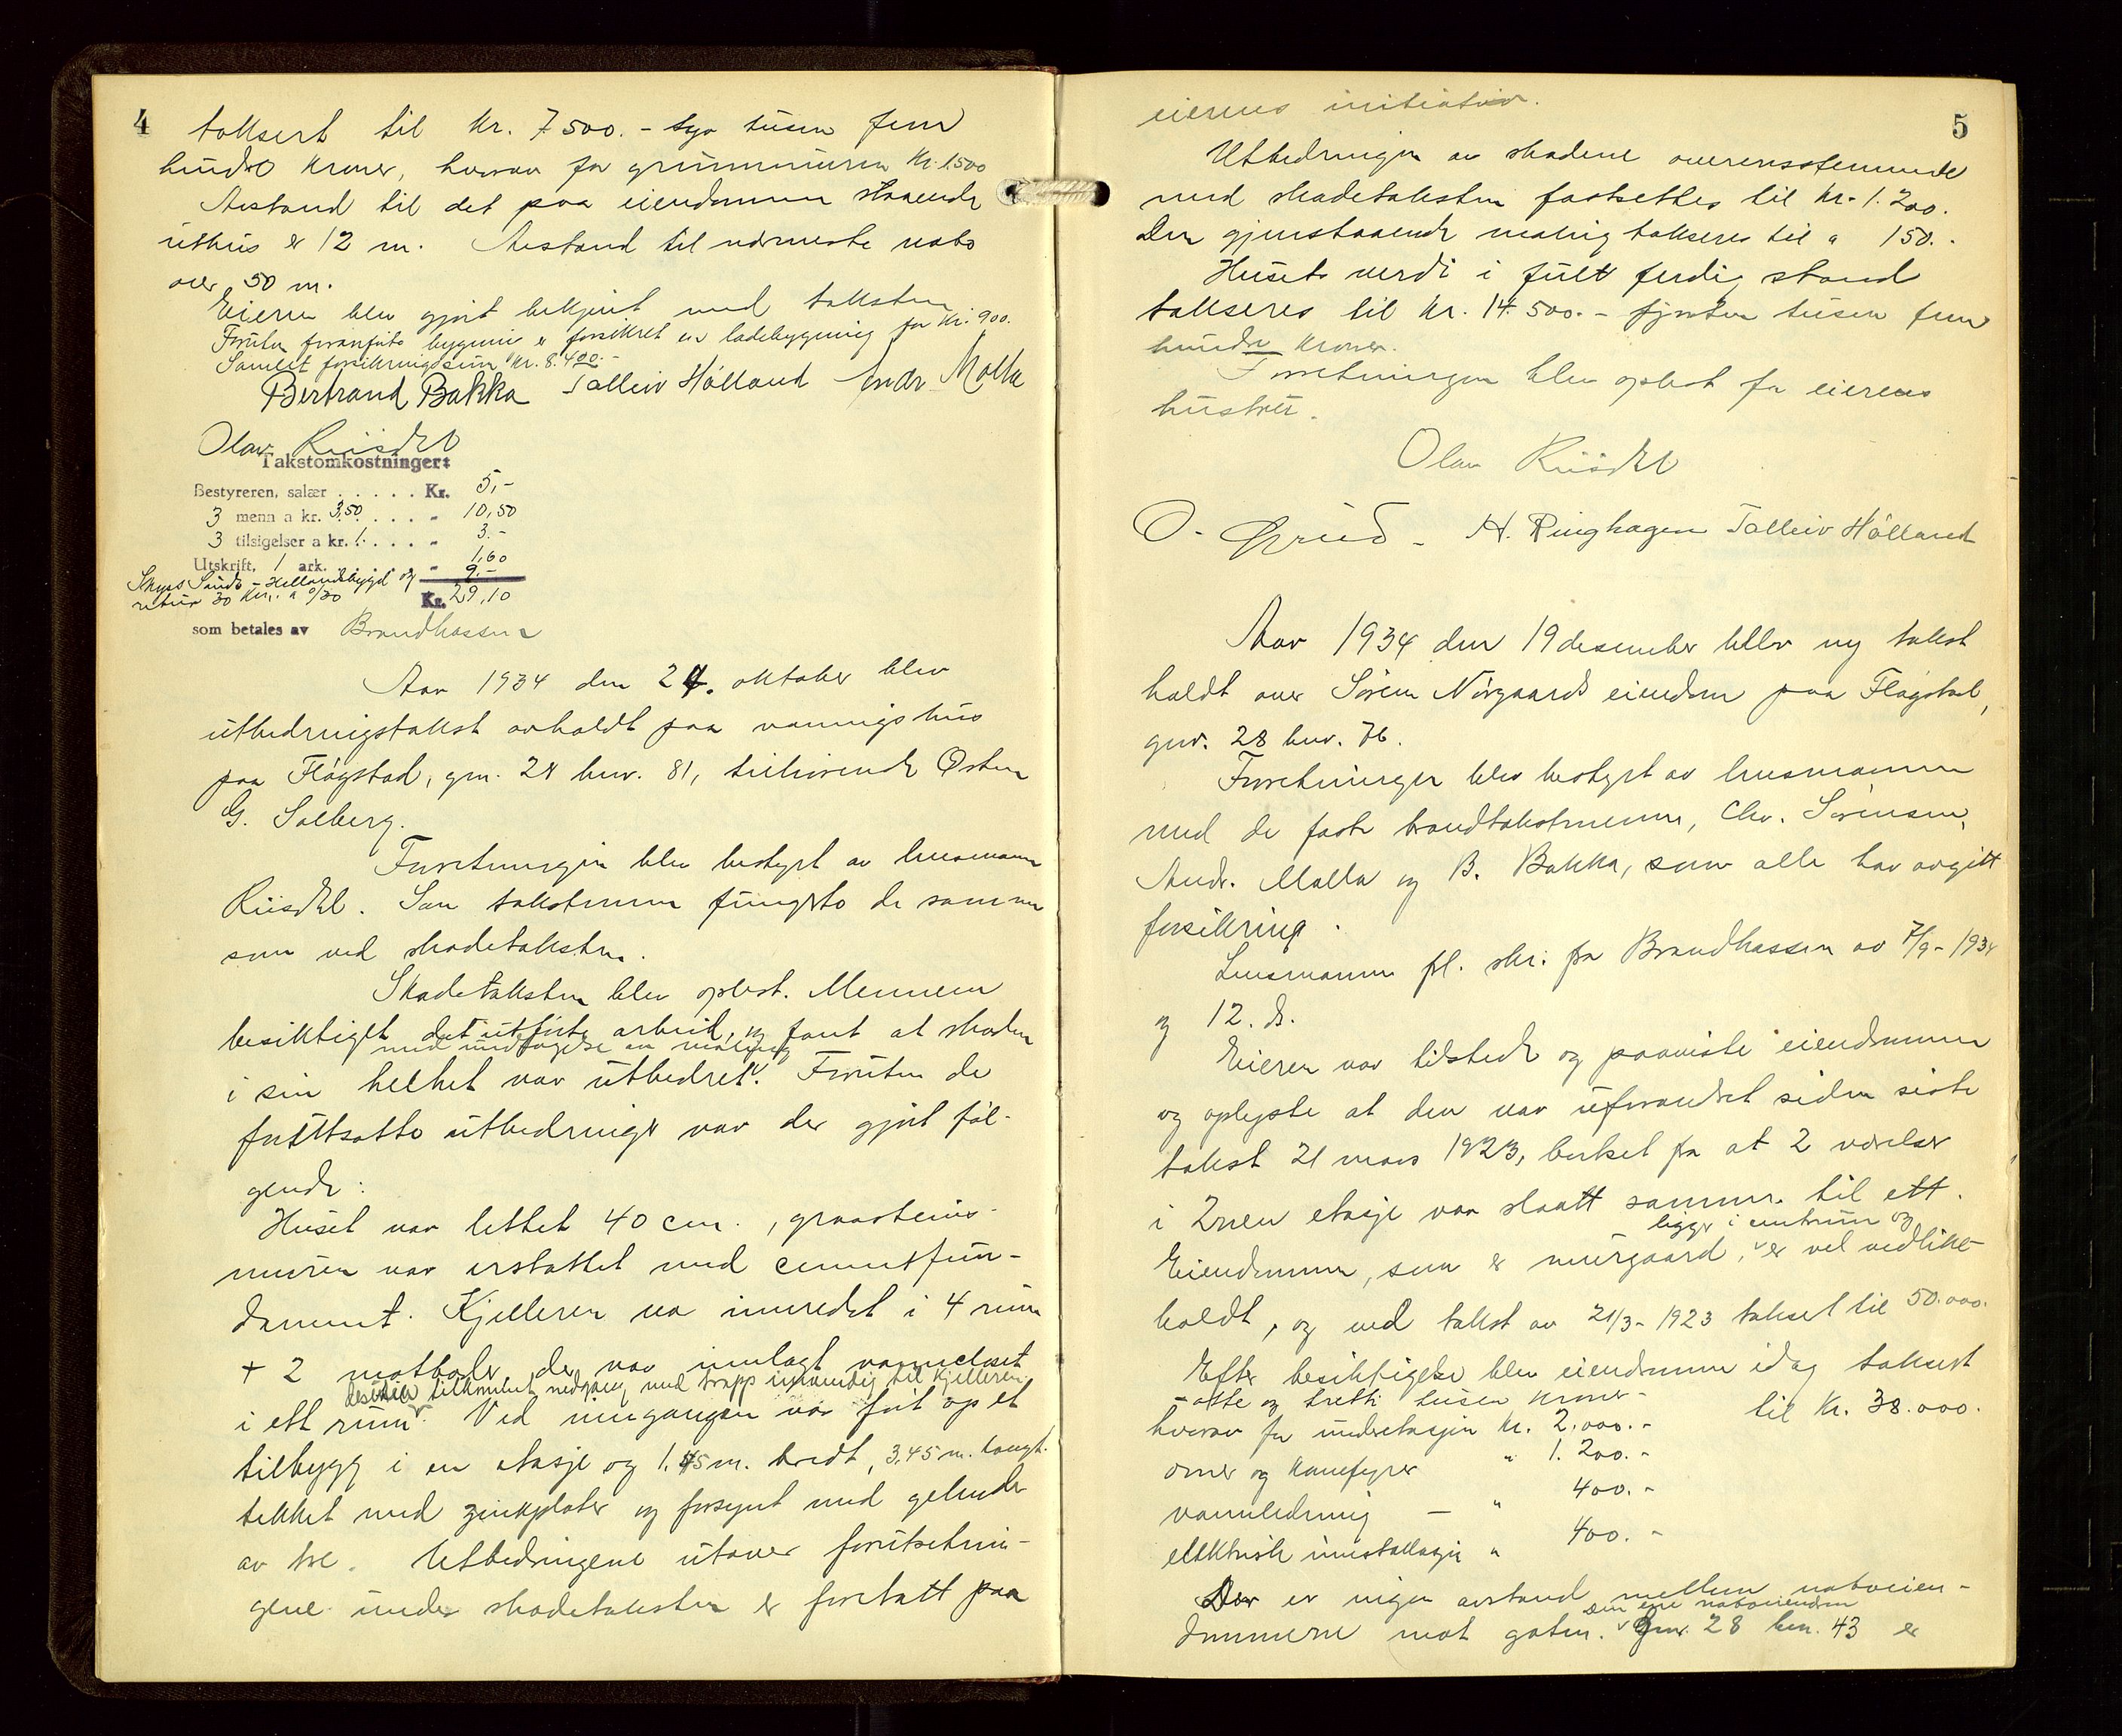 4
taksert til Kr. 7500.- syv tusen fem
hundre kroner, hvorav for grunnmuren Kr. 1500
Avstand til det paa eiendommen staaende
uthus er 12 m. Avstand til nærmeste nabo
over 50 m.
Eieren blev gjort bekjent med taksten
Foruten foranførte bygning er forsikret en ladebygning for Kr. 900.
Samlet forsikringssum Kr. 8.400.-
Bertrand Bakka Tølleiv Hølland Andr. Malla
Olav Riisdal
Takstomkostninger:
Bestyreren, salær . . . . . Kr. 5,-
3 menn a kr. 3,50 . . . . - 10,50
3 tilsigelser a kr. 1. . . . . - 3.-
Utskrift, 1 ark. - 1,60
Skyss Sand - Hellandsbygd og 9.-
retur 30 Km. a 0/30 Kr. 29,10
som betales av Brandkassen
Aar 1934 den 24. oktober blev
utbedringstakst avholdt paa vaaningshus
paa Fløgstad, gnr. 28 bnr. 81, tilhørende Østen
G. Solberg.
Forretningen blev bestyrt av lensmann
Riisdal. Som takstmenn fungerte de samme
som ved skadetaksten.
Skadetaksten blev oplest. Mennene
besiktiget det utførte arbeid, og fant at skaden
med undtagelse av maling
i sin helhet var utbedret. Foruten de
forutsatte utbedringer var der gjort føl-
gende:
Huset var lettet 40 cm., graasteins-
muren var erstattet med cementfun-
dament. Kjelleren var innredet i 4 rum
+ 2 matboder der var innlagt vanncloset
desuten tilkommet nedgang med trapp innvendig til kjelleren
i ett rum. Ved inngangen var ført op et
tilbygg i en etasje og 1.45 m. bredt, 3,45 m. langt.
tekket med zinkplater og forsynt med gelender
av tre. Utbedringene utover forutsetnin-
gene under skadetaksten er foretatt paa
5
eierens initiativ.
Utbedringen av skadene overensstemmende
med skadetaksten fastsettes til Kr. 1.200.
Den gjenstaaende maling takseres til " 150.-
Husets verdi i fullt ferdig stand
takseres til Kr. 14.500.- fjorten tusen fem
hundre kroner.
Forretningen blev oplest for eierens
hustru.
Olav Riisdal
O. Grud - H. Ringhagen Tølleiv Hølland
Aar 1934 den 19 desember blev ny takst
holdt over Søren Nørgaards eiendom paa Fløgstad,
gnr. 28 bnr. 76.
Forretningen blev bestyrt av lensmannen
med de faste brandtakstmenn, Chr. Sørensen,
Andr. Malla og B. Bakka, som alle har avgitt
forsikring.
Lensmannen fl. skr. fra Brandkassen av 7/9-1934
og 12. ds.
Eieren var tilstede og paaviste eiendommen
og oplyste at den var uforandret siden siste
takst 21 mars 1923, bortset fra at 2 værelser
i 2nen etasje var slaatt sammen til ett.
ligger i centrum og
Eiendommen, som er murgaard, er vel vedlike-
holdt, og ved takst av 21/3-1923 taksert til 50.000.
Efter besiktigelse blev eiendommen idag taksert
- otte og tretti tusen kroner - til Kr. 38.000.
hvorav for underetasjen Kr. 2.000.-
ovner og kaminfyrer " 1.200.-
vannledning - " 400.-
elektrisk innstallasjon " 400.-
Der er ingen avstand mellem naboeien-
den ene naboeiendom
dommene mot gaten. Gnr. 28 bnr. 43 er